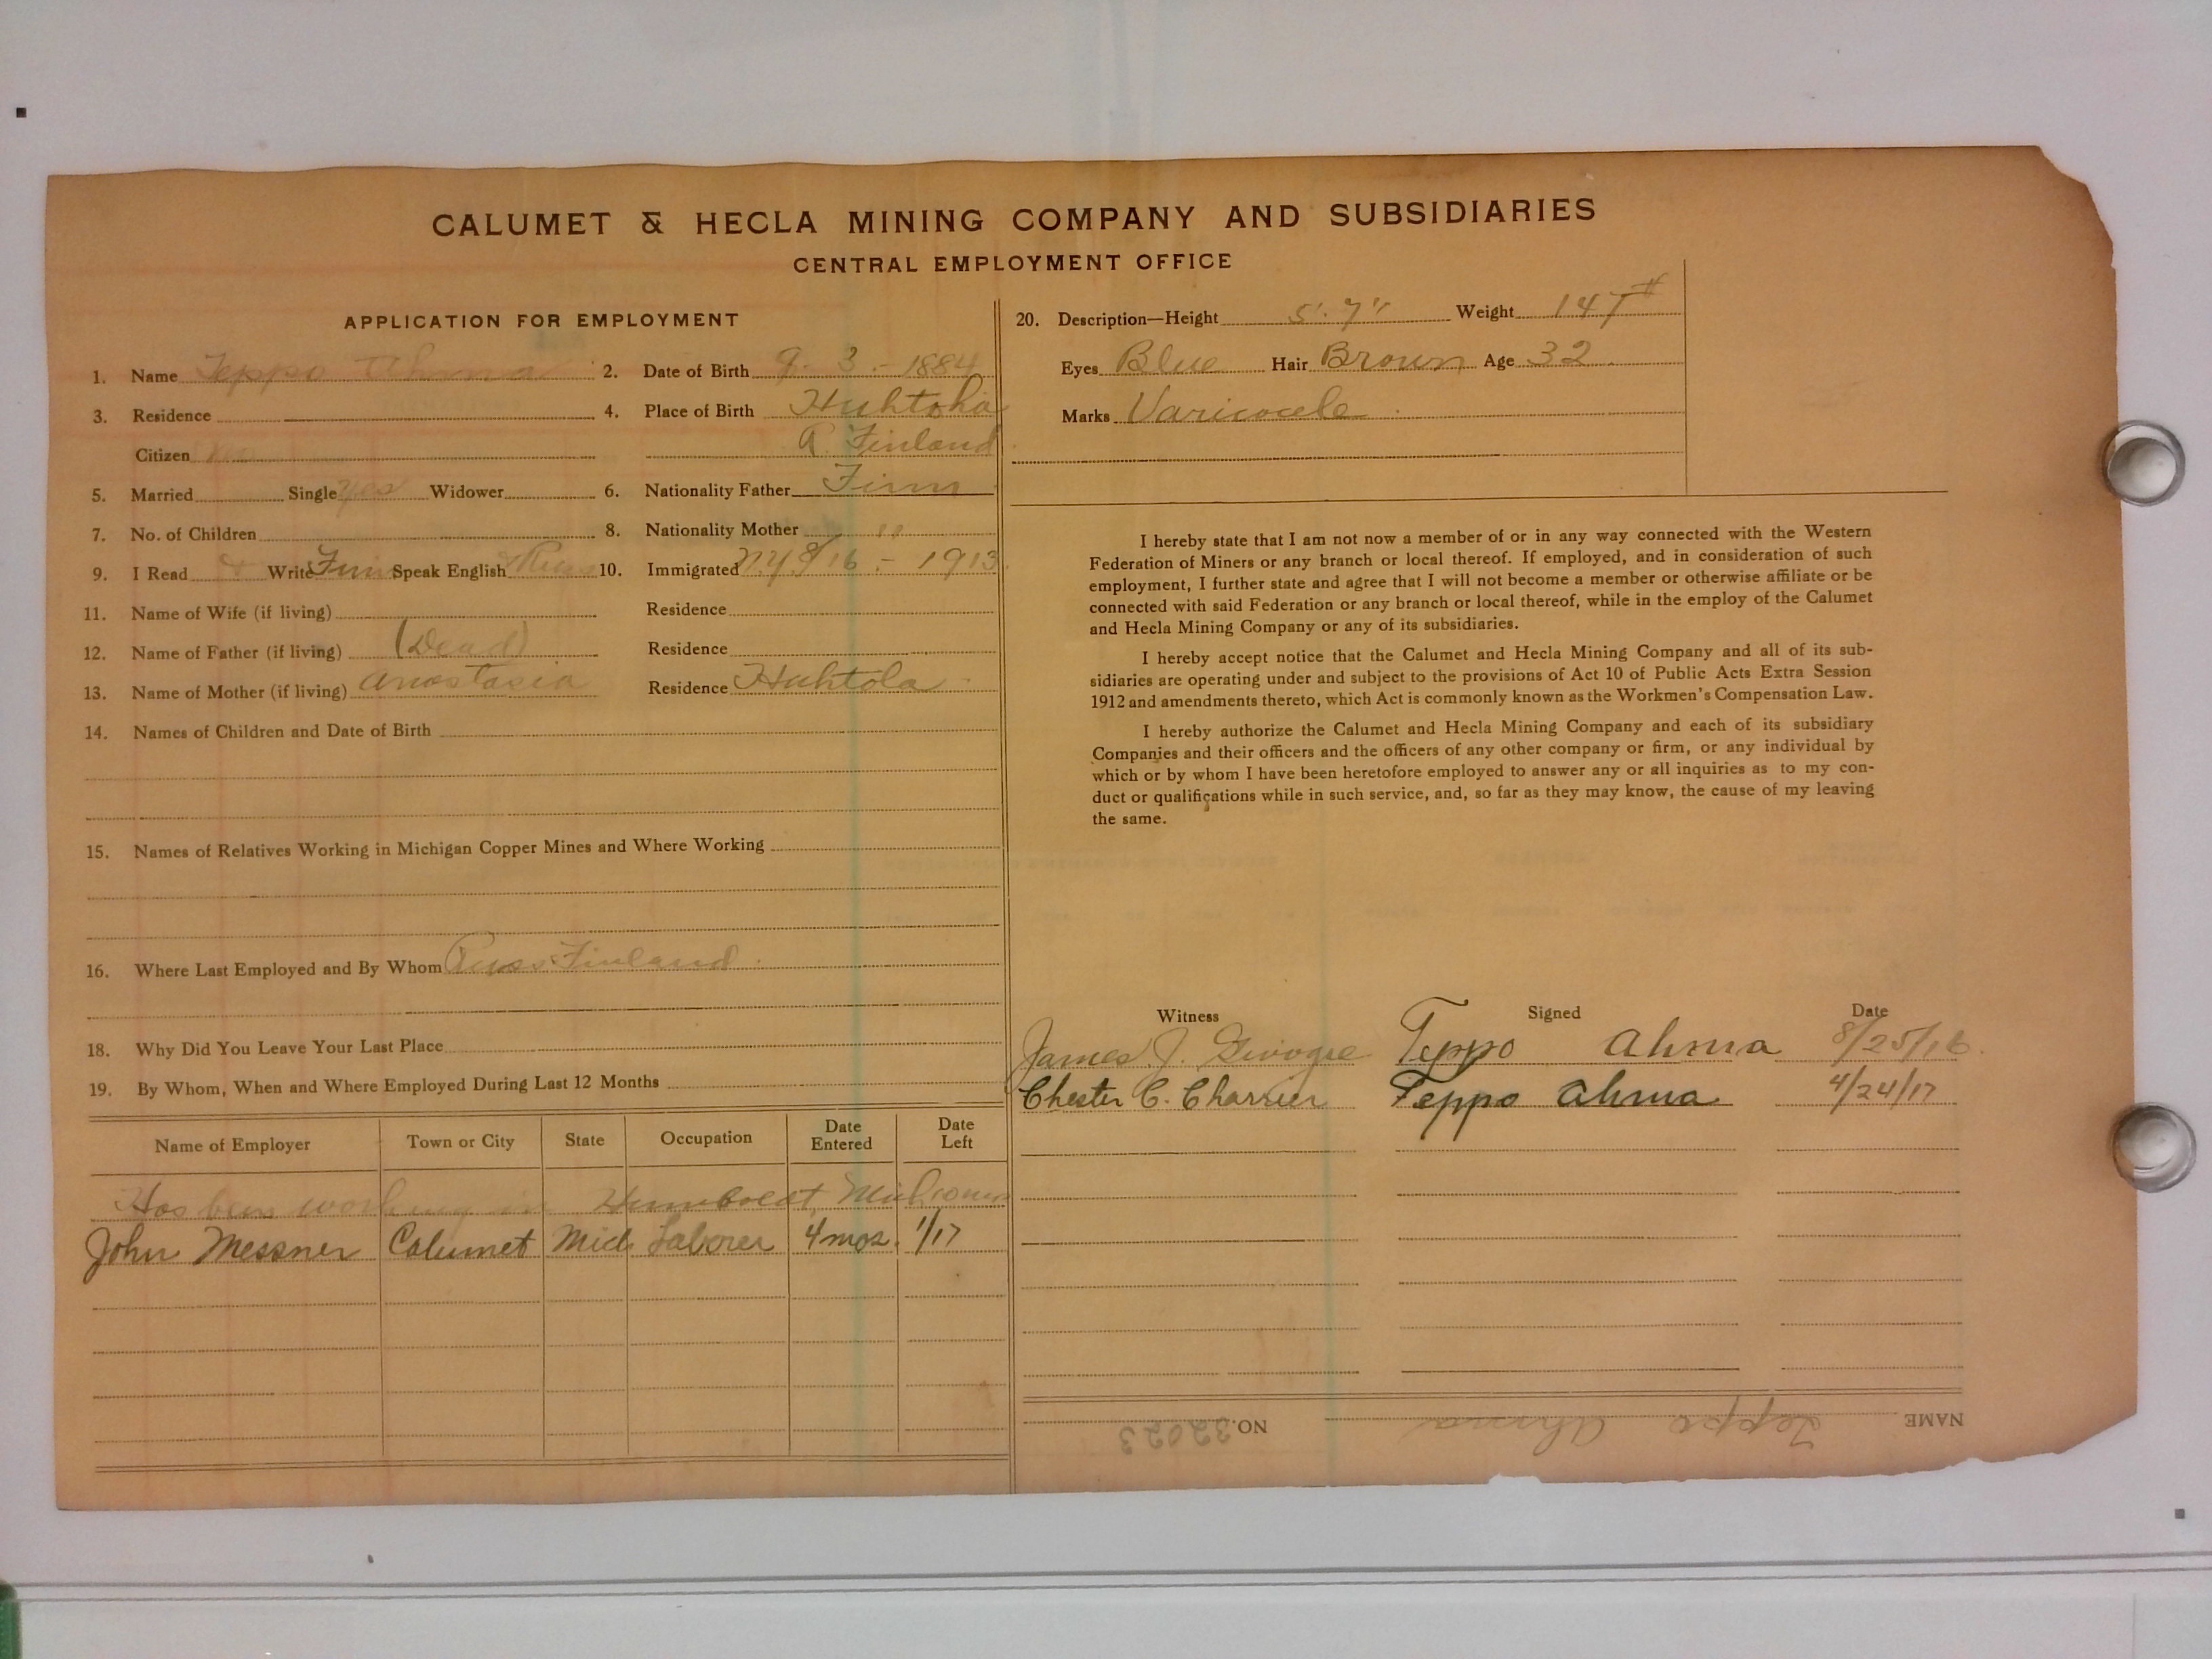 CALUMET & HECLA MINING COMPANY AND SUBSIDIARIES
CENTRAL EMPLOYMENT OFFICE
APPLICATION FOR EMPLOYMENT
1. Name Teppo Ahma
2. Date of Birth 9. 3. - 1884
3. Residence
4. Place of Birth Huhtola
Citizen
R. Finland
5. Married Single yes Widower
6. Nationality Father Finn
7. No. of Children
8. Nationality Mother "
9. I Read & Write Finn Speak English & Russ
10. Immigrated N.Y. 8/16 - 1913
11. Name of Wife (if living)
Residence
12. Name of Father (if living) (Dead)
Residence
13. Name of Mother (if living) Anastasia
Residence Huhtola
14. Names of Children and Date of Birth
15. Names of Relatives Working in Michigan Copper Mines and Where Working
16. Where Last Employed and By Whom Russ. Finland
18. Why Did You Leave Your Last Place
19. By Whom, When and Where Employed During Last 12 Months
Name of Employer Town or City State Occupation Date Entered Date Left
Has been working in Humboldt, Mich
John Messner Calumet Mich Laborer 4 mos. 1/17
20. Description—Height 5' 7" Weight 147#
Eyes Blue Hair Brown Age 32
Marks Varicocele
I hereby state that I am not now a member of or in any way connected with the Western
Federation of Miners or any branch or local thereof. If employed, and in consideration of such
employment, I further state and agree that I will not become a member or otherwise affiliate or be
connected with said Federation or any branch or local thereof, while in the employ of the Calumet
and Hecla Mining Company or any of its subsidiaries.
I hereby accept notice that the Calumet and Hecla Mining Company and all of its sub-
sidiaries are operating under and subject to the provisions of Act 10 of Public Acts Extra Session
1912 and amendments thereto, which Act is commonly known as the Workmen's Compensation Law.
I hereby authorize the Calumet and Hecla Mining Company and each of its subsidiary
Companies and their officers and the officers of any other company or firm, or any individual by
which or by whom I have been heretofore employed to answer any or all inquiries as to my con-
duct or qualifications while in such service, and, so far as they may know, the cause of my leaving
the same.
Witness Signed Date
James J. Teppo Ahma 8/25/16
Chester C. Charrier Teppo Ahma 4/24/17
NAME Teppo Ahma NO. 32023